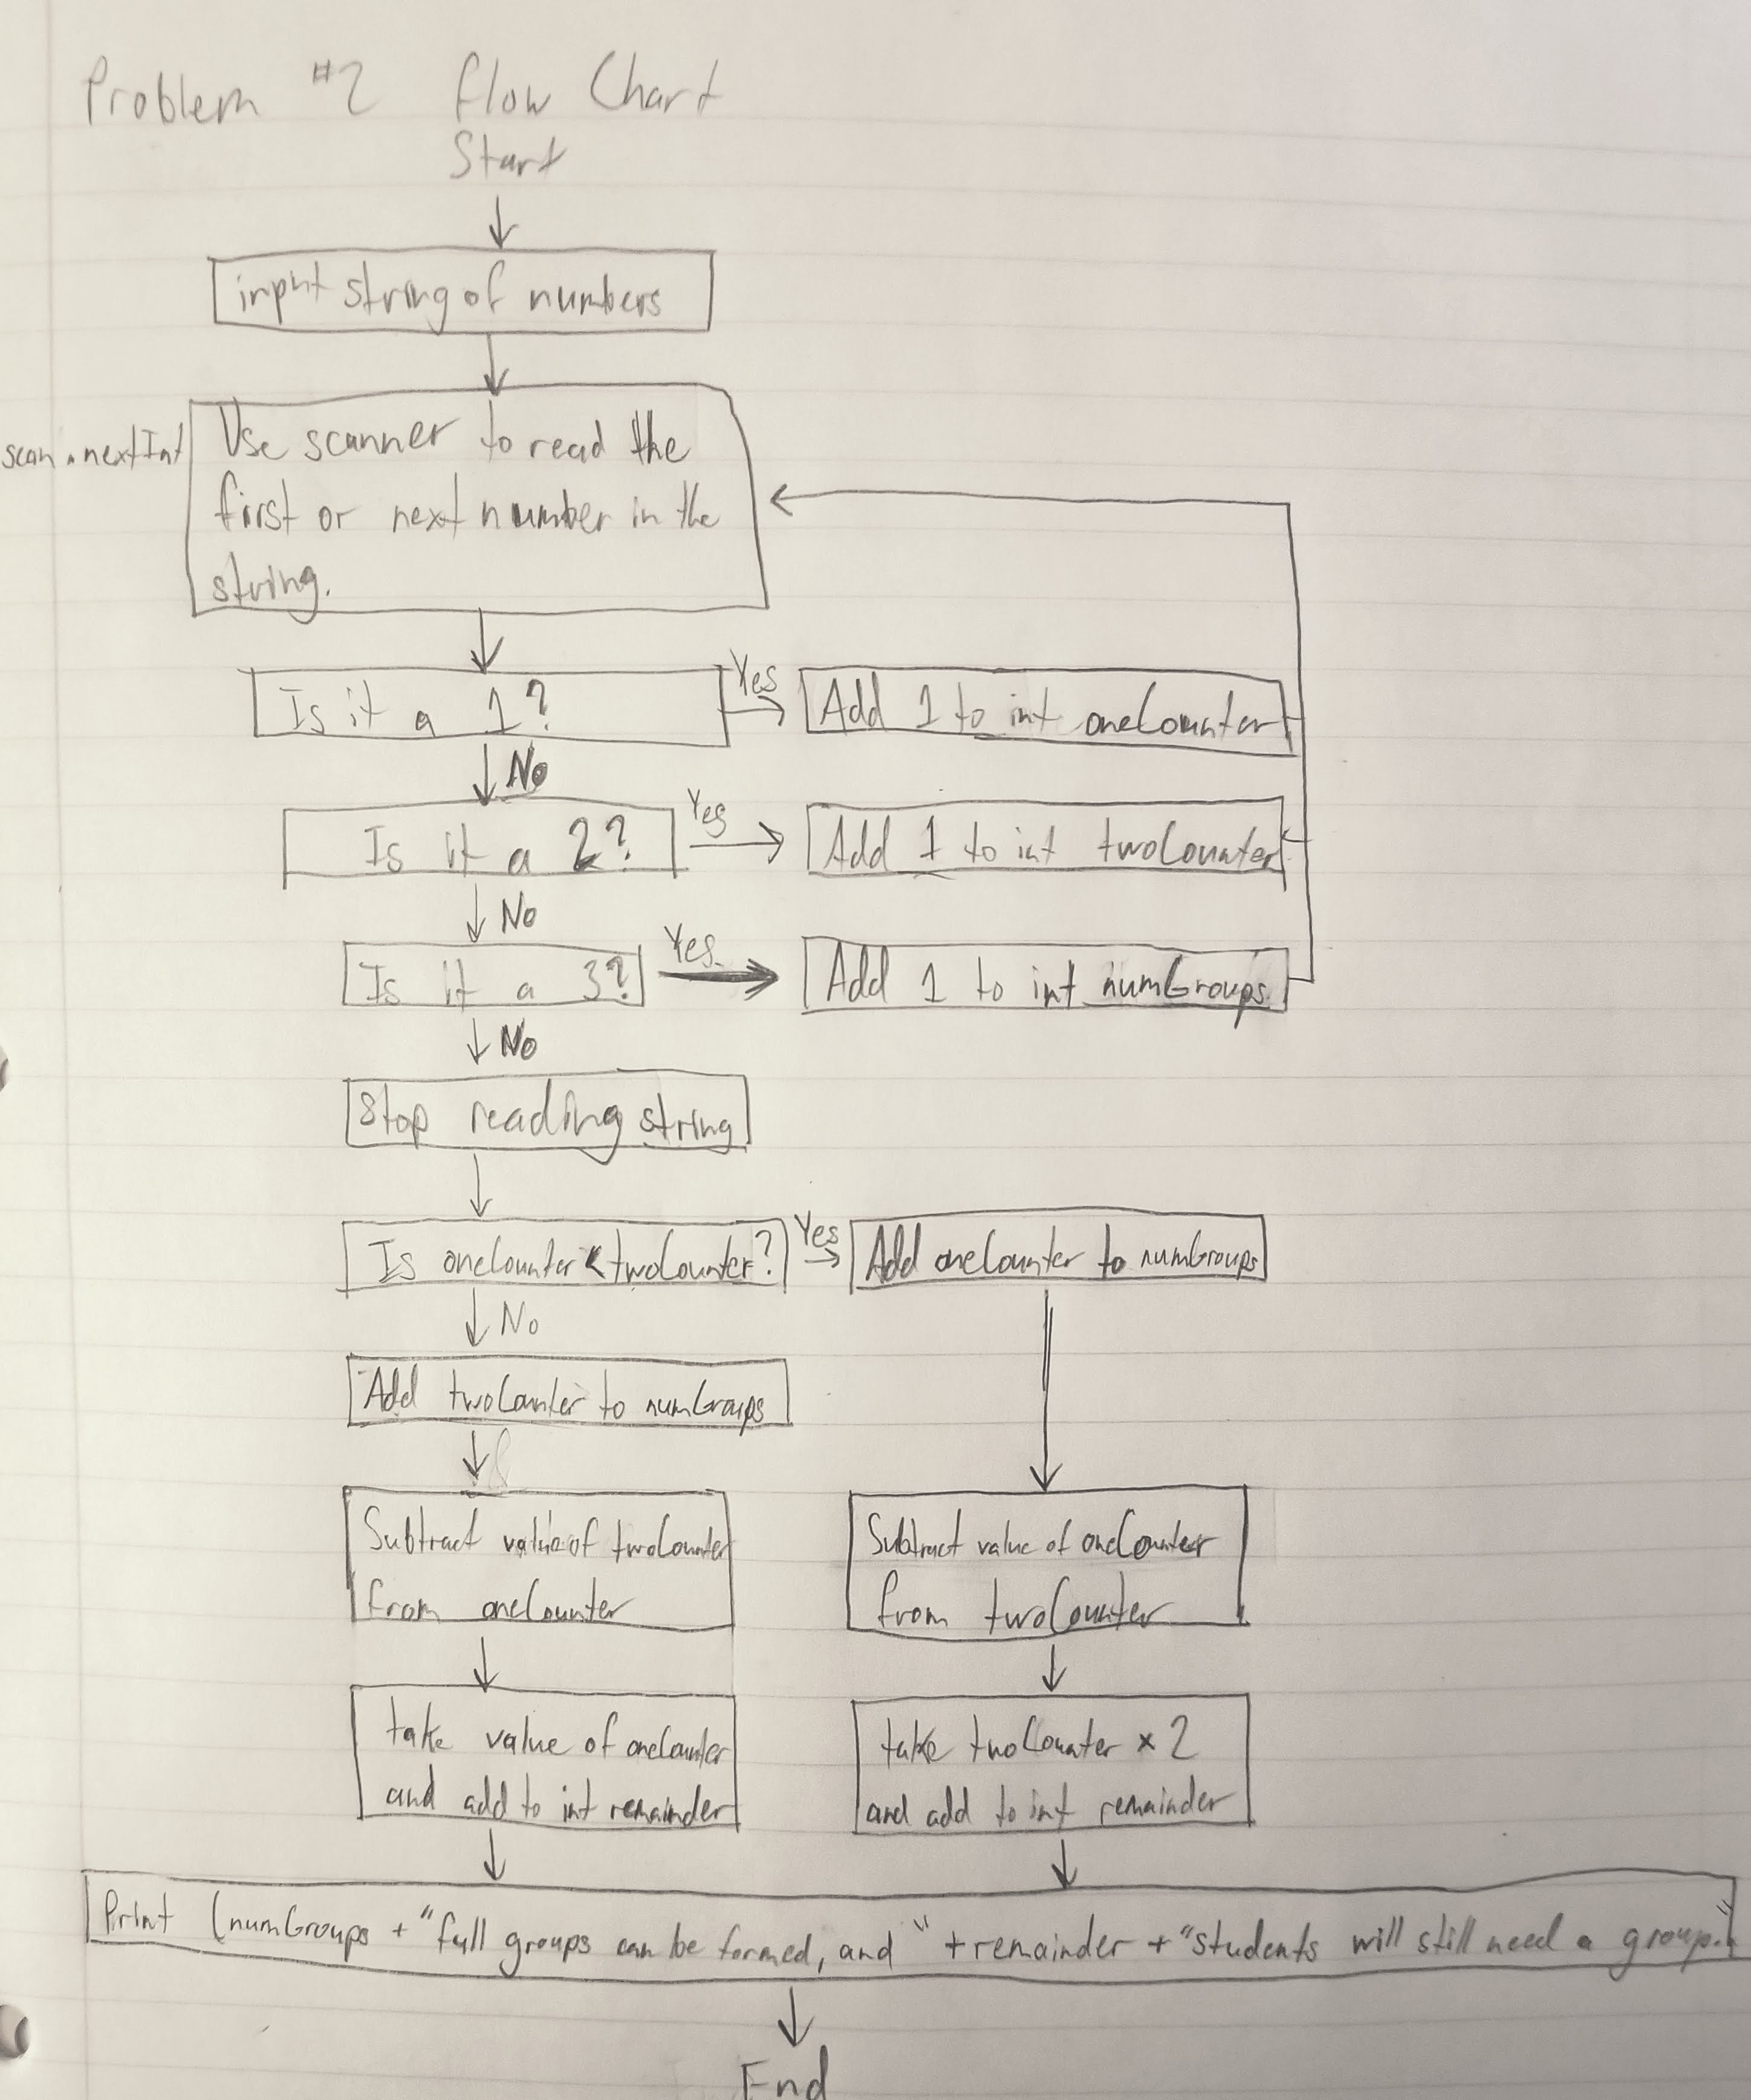 Problem #2 Flow Chart
Start
input string of numbers
scan.nextInt
Use scanner to read the
first or next number in the
string.
Is it a 1?
Yes
Add 1 to int oneCounter
No
Is it a 2?
Yes
Add 1 to int twoCounter
No
Is it a 3?
Yes
Add 1 to int numGroups
No
Stop reading string
Is oneCounter < twoCounter?
Yes
Add oneCounter to numGroups
No
Add twoCounter to numGroups
Subtract value of twoCounter
from oneCounter
Subtract value of oneCounter
from twoCounter
take value of oneCounter
and add to int remainder
take twoCounter × 2
and add to int remainder
Print (numGroups + "full groups can be formed, and " + remainder + "students will still need a group."
End